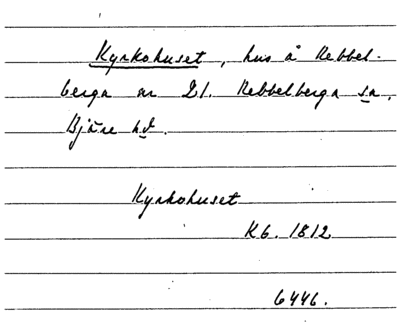 Kyrkohuset, hus å Rebbel-
berga nr 21. Rebbelberga sn,
Bjäre hd.
Kyrkohuset
Kb. 1812
6446.